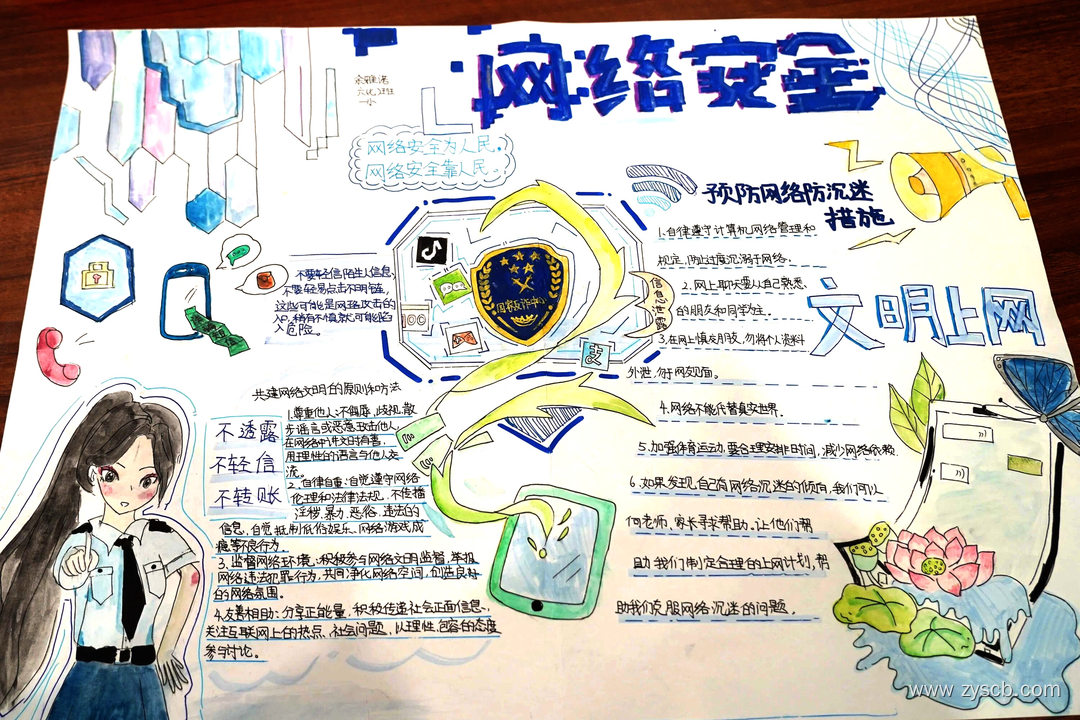 网络安全
六(2)班
一小
网络安全为人民。
网络安全靠人民。
不要轻信陌生人信息,
不要轻易点击不明链,
这些可能是网络攻击的
入危险。
国家反诈中心
支
信息泄露
预防网络防沉迷
措施
1.自律遵守计算机网络管理和
规定,防止过度沉溺于网络。
2.网上聊天要以自己熟悉
的朋友和同学为主。
3.在网上慎交朋友,勿将个人资料
外泄,勿于网友见面。
4.网络不能代替真实世界。
5.加强体育运动,要合理安排时间,减少网络依赖.
6.如果发现自己有网络沉迷的倾向,我们可以
向老师、家长寻求帮助。让他们帮
助我们制定合理的上网计划,帮
助我们克服网络沉迷的问题。
文明上网
共建网络文明的原则和方法
不透露
不轻信
不转账
1.尊重他人:不侮辱,歧视,散
步谣言或恶意攻击他人,
在网络中讲文明有害,
用理性的语言与他人交
流。
2.自律自重:自觉遵守网络
伦理和法律法规,不传播
淫秽、暴力、恶俗、违法的
信息,自觉抵制低俗娱乐、网络游戏成
瘾等不良行为。
3.监督网络环境:积极参与网络文明监督,举报
网络违法犯罪行为,共同净化网络空间,创造良好
的网络氛围。
4.友善相助:分享正能量,积极传递社会正面信息,
关注互联网上的热点、社会问题,以理性、包容的态度
参与讨论。
www.zyscb.com